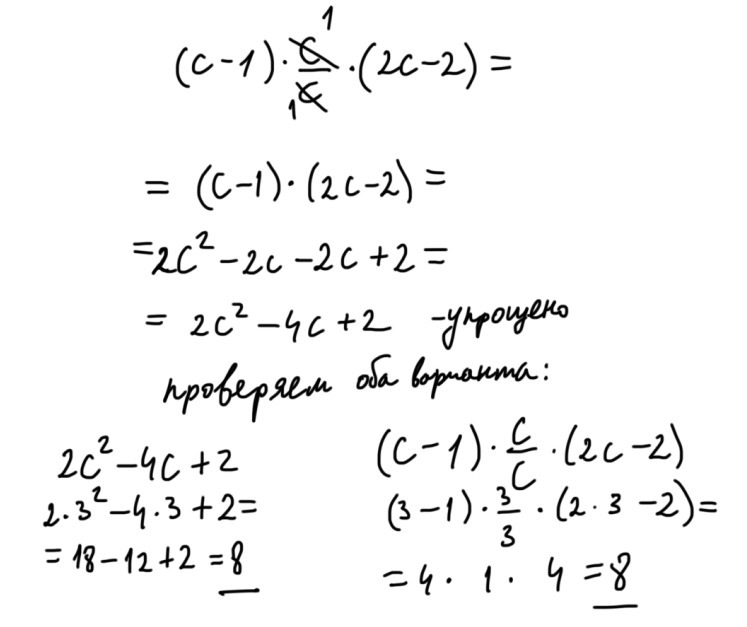 (c-1)·c/c·(2c-2)= 1 1
= (c-1)·(2c-2)=
=2c²-2c-2c+2=
= 2c²-4c+2 -упрощено
проверяем оба варианта:
2c²-4c+2
2·3²-4·3+2=
=18-12+2=8
(c-1)·c/c·(2c-2)
(3-1)·3/3·(2·3-2)=
=4·1·4=8